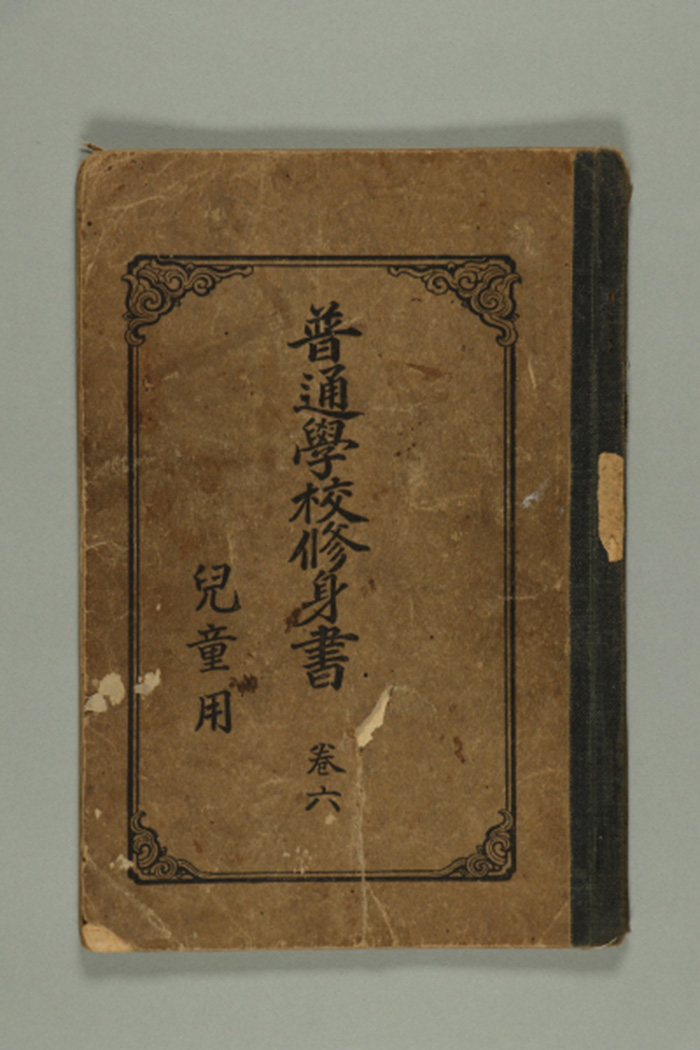 普通學校修身書 卷六
兒童用